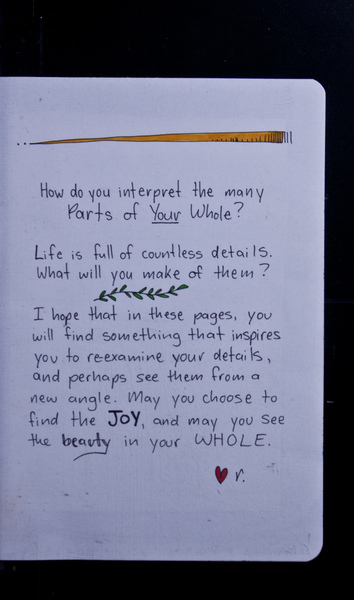 How do you interpret the many
Parts of Your Whole?
Life is full of countless details.
What will you make of them?
I hope that in these pages, you
will find something that inspires
you to re-examine your details,
and perhaps see them from a
new angle. May you choose to
find the JOY, and may you see
the beauty in your WHOLE.
r.